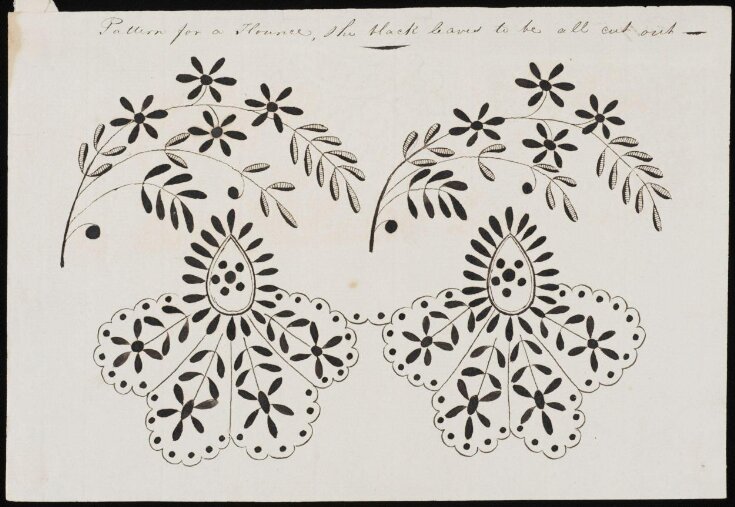 Pattern for a Flounce, the black leaves to be all cut out —